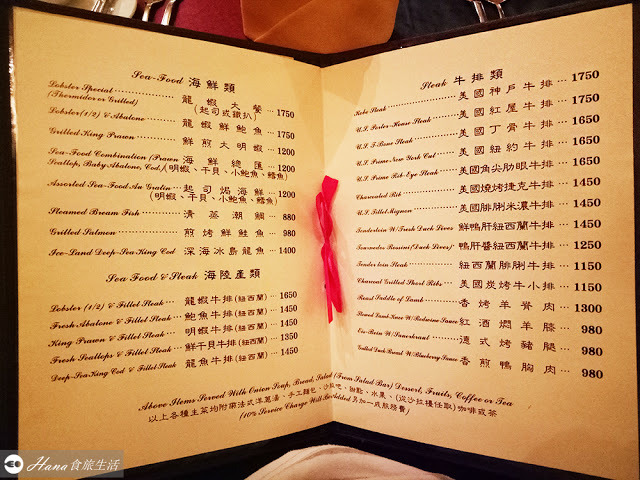 Sea-Food 海鮮類
Lobster Special 龍蝦大餐 1750
(Thermidor or Grilled) (起司或鐵扒)
Lobster(1/2) & Abalone 龍蝦鮮鮑魚 1750
Grilled King Prawn 鮮煎大明蝦 1200
Sea-Food Combination (Prawn 海鮮總匯 1200
Scallop, Baby Abalone, Cod) (明蝦、干貝、小鮑魚、鱈魚)
Assorted Sea-Food Au Gratin 起司焗海鮮 1200
(明蝦、干貝、小鮑魚、鱈魚)
Steamed Bream Fish 清蒸潮鯛 880
Grilled Salmon 煎烤鮮鮭魚 980
Ice-Land Deep-Sea King Cod 深海冰島龍魚 1400
Sea Food & Steak 海陸產類
Lobster (1/2) & Fillet Steak 龍蝦牛排(紐西蘭) 1650
Fresh Abalone & Fillet Steak 鮑魚牛排(紐西蘭) 1450
King Prawn & Fillet Steak 明蝦牛排(紐西蘭) 1450
Fresh Scallops & Fillet Steak 鮮干貝牛排(紐西蘭) 1350
Deep-Sea King Cod & Fillet Steak 龍魚牛排(紐西蘭) 1450
Steak 牛排類
Kobe Steak 美國神戶牛排 1750
U.S. Porter-House Steak 美國紅屋牛排 1750
U.S. T-Bone Steak 美國丁骨牛排 1650
U.S. Prime New York Cut 美國紐約牛排 1650
U.S. Prime Rib-Eye Steak 美國角尖肋眼牛排 1650
Charcoaled Rib 美國燒烤捷克牛排 1450
U.S. Fillet Mignon 美國腓脷米濃牛排 1450
Tenderloin W/Fresh Duck Liver 鮮鴨肝紐西蘭牛排 1450
Tournedos Rossini (Duck Liver) 鴨肝醬紐西蘭牛排 1250
Tenderloin Steak 紐西蘭腓脷牛排 1150
Charcoal Grilled Short Ribs 美國炭烤牛小排 1150
Roast Saddle of Lamb 香烤羊脊肉 1300
Stewed Lamb Knee W/Redwine Sauce 紅酒燜羊膝 980
Eis-Bein W/Sauerkraut 德式烤豬腿 980
Grilled Duck Breast W/Blueberry Sauce 香煎鴨胸肉 980
Above Items Served With Onion Soup, Bread, Salad (From Salad Bar) Dessert, Fruits, Coffee or Tea
以上各種主菜均附屬法式洋蔥湯、手工麵包、沙拉吧、甜點、水果、(從沙拉檯任取)咖啡或茶
(10% Service Charge Will Be Added 另加一成服務費)
Hana食旅生活